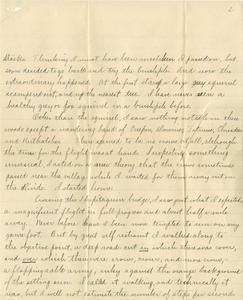 2
stacks. Thinking I must have been mistaken I passed on, but
some decided to go back and try the brushpile. And now the
extraordinary happened. At the first stamp a large grey squirrel
scampered out, up the nearest tree. I have never seen a
healthy grey fox squirrel in a brushpile before.
Other than the squirrel, I saw nothing notable in the
woods except a wandering band of Creepers, Downies, Titmice, Chickadees
and Nuthatches. There seemed to be no crows at all, although
the time for the flight was at hand. Suspecting something
unusual, I acted on a theory that the crows sometimes
passed near the village, while I waited for them away out on
the Divide. I started home.
Crossing the Shepitaguin bridge, I saw just what I expected,
a magnificent flight in full progress and about half a mile
away. Never before have I been more tempted to run on my
game foot. But by great self restraint I walked along to
the objective point, a deep road cut in which streams cover,
and over which there were crows, crows, and more crows,
a flapping cable army, inky against the orange background
of the setting sun. I called it walking, and technically it
was, but I will not estimate the number of steps per second.